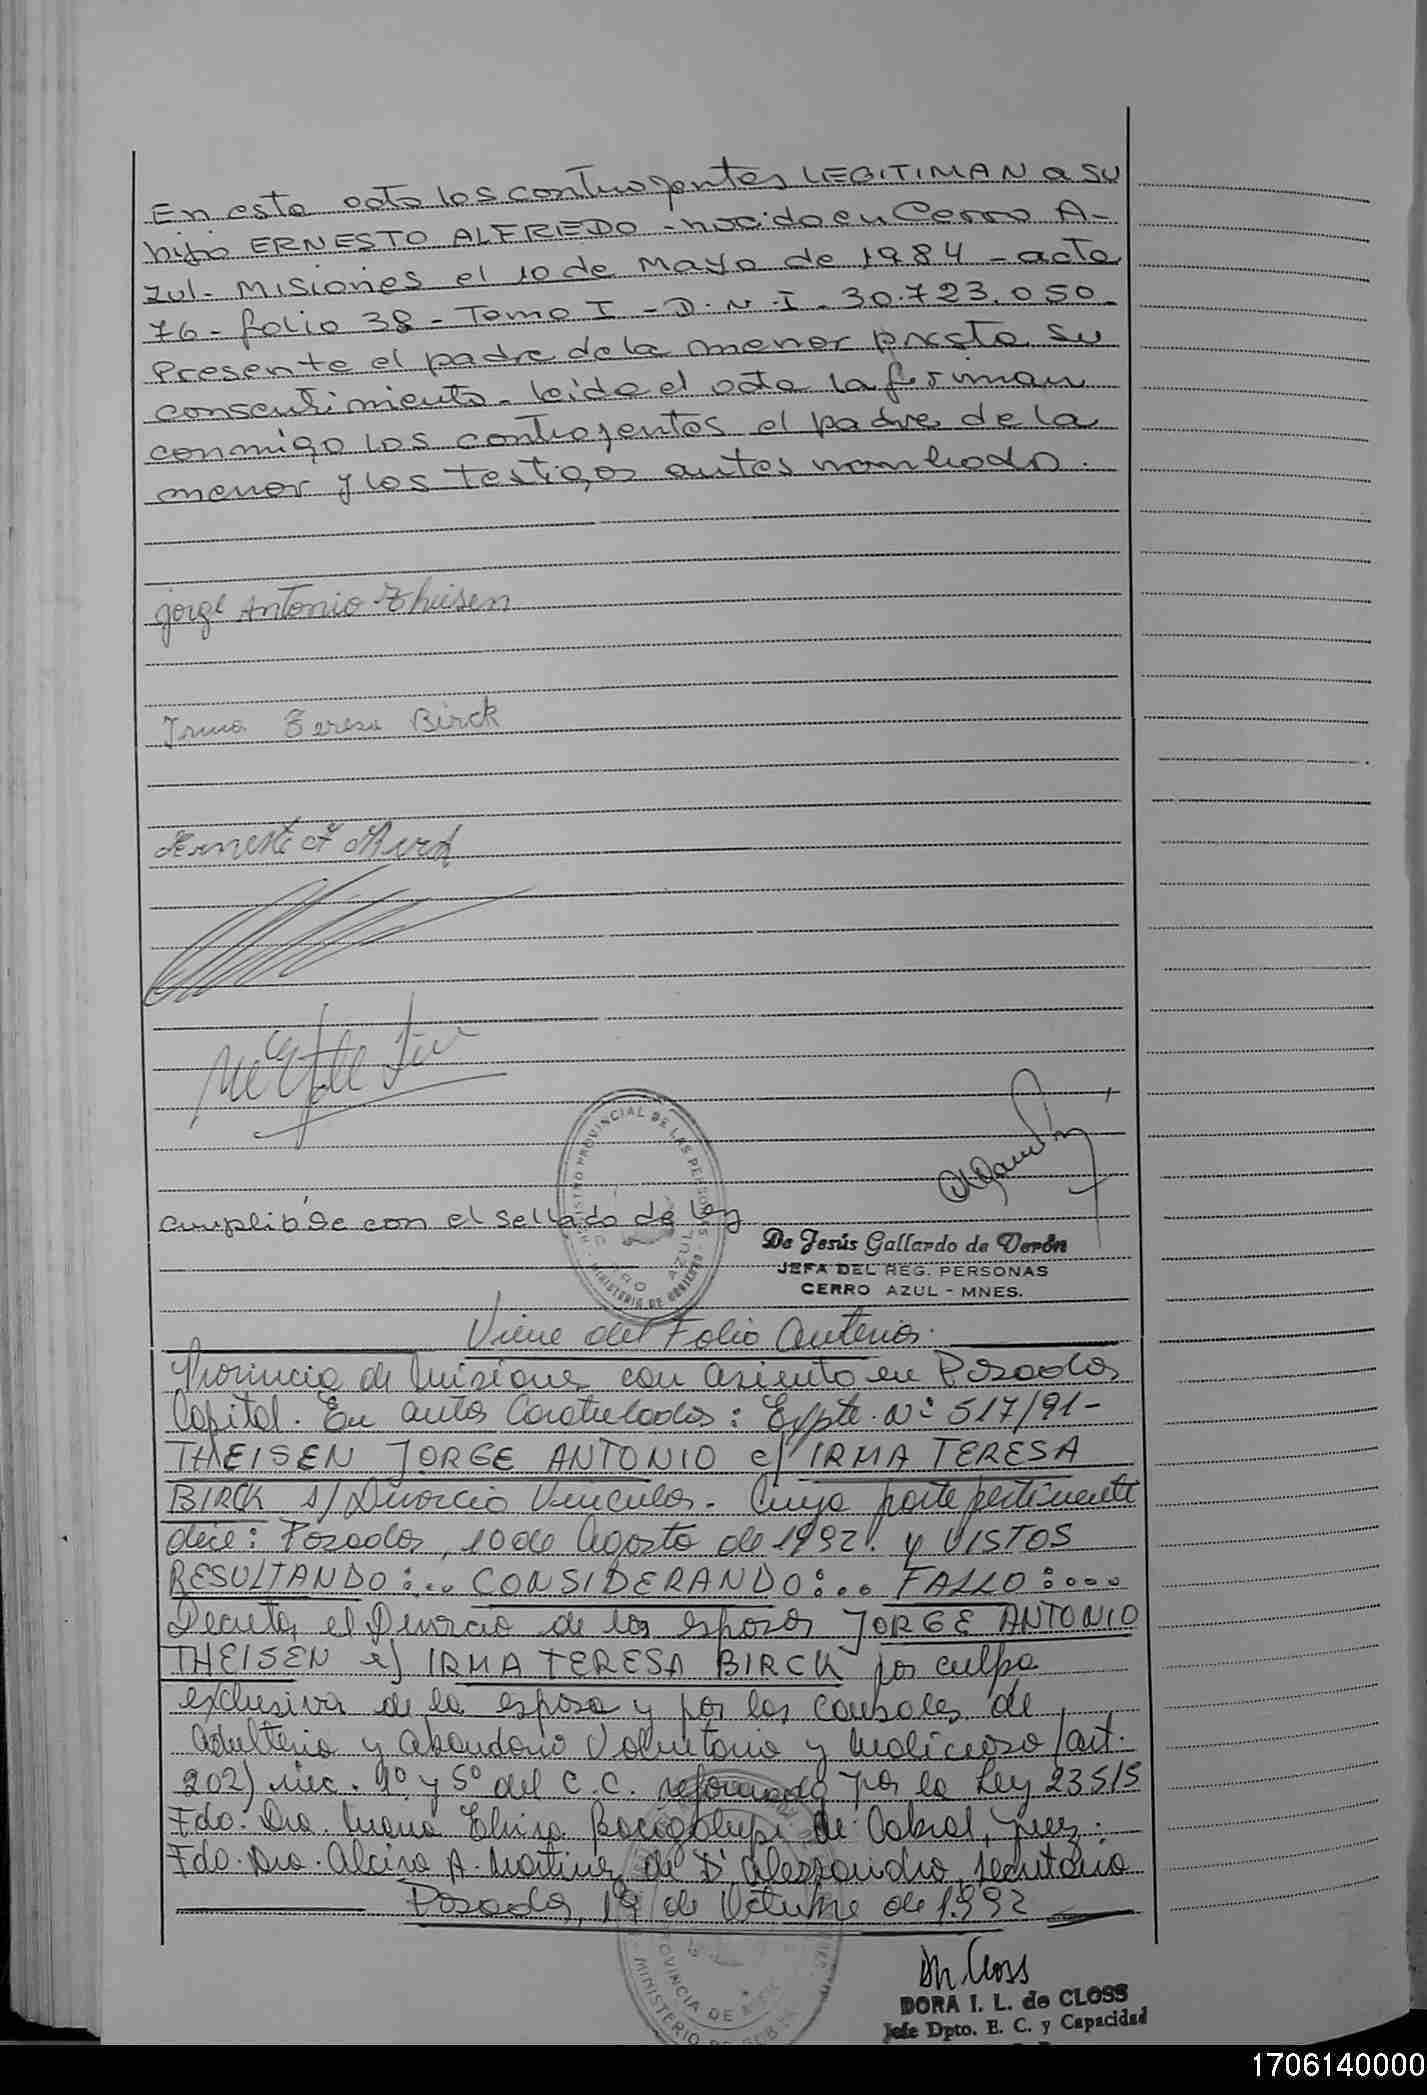 En este acto los contrayentes LEGITIMAN a su
hijo ERNESTO ALFREDO - nacido en Cerro A-
zul - Misiones el 10 de Mayo de 1984 - acta
76 - folio 38 - Tomo I - D.N.I. 30.723.050 -
Presente el padre de la menor presta su
consentimiento - leida el acta la firman
conmigo los contrayentes el padre de la
menor y los testigos antes nombrado.
jorge Antonio Theisen
Irma Teresa Birck
Cumplióse con el sellado de ley
REGISTRO PROVINCIAL DE LAS PERSONAS
CERRO AZUL
MINISTERIO DE GOBIERNO
De Jesús Gallardo de Verón
JEFA DEL REG. PERSONAS
CERRO AZUL - MNES.
Viene del Folio Anterior.
Provincia de Misiones con asiento en Posadas
Capital. En autos Caratulados: Expte. Nº 517/91-
THEISEN JORGE ANTONIO c/ IRMA TERESA
BIRCK s/ Divorcio Vincular. Cuya parte pertinente
dice: Posadas, 10 de Agosto de 1992. y VISTOS
RESULTANDO:... CONSIDERANDO:... FALLO:...
Decretar el Divorcio de los esposos JORGE ANTONIO
THEISEN c/ IRMA TERESA BIRCK por culpa
exclusiva de la esposa y por las causales de
adulterio y abandono Voluntario y malicioso (art.
202) inc. 1º y 5º del C.C. reformado por la Ley 23515
Fdo. Dra. María Elvira de Cabral, Juez.
Fdo. Dra. Alcira A. Martinez de D'alessandro, secretaria
Posadas, 19 de Octubre de 1992
DORA I. L. de CLOSS
Jefe Dpto. E. C. y Capacidad
PROVINCIA DE
MINISTERIO DE
1706140000